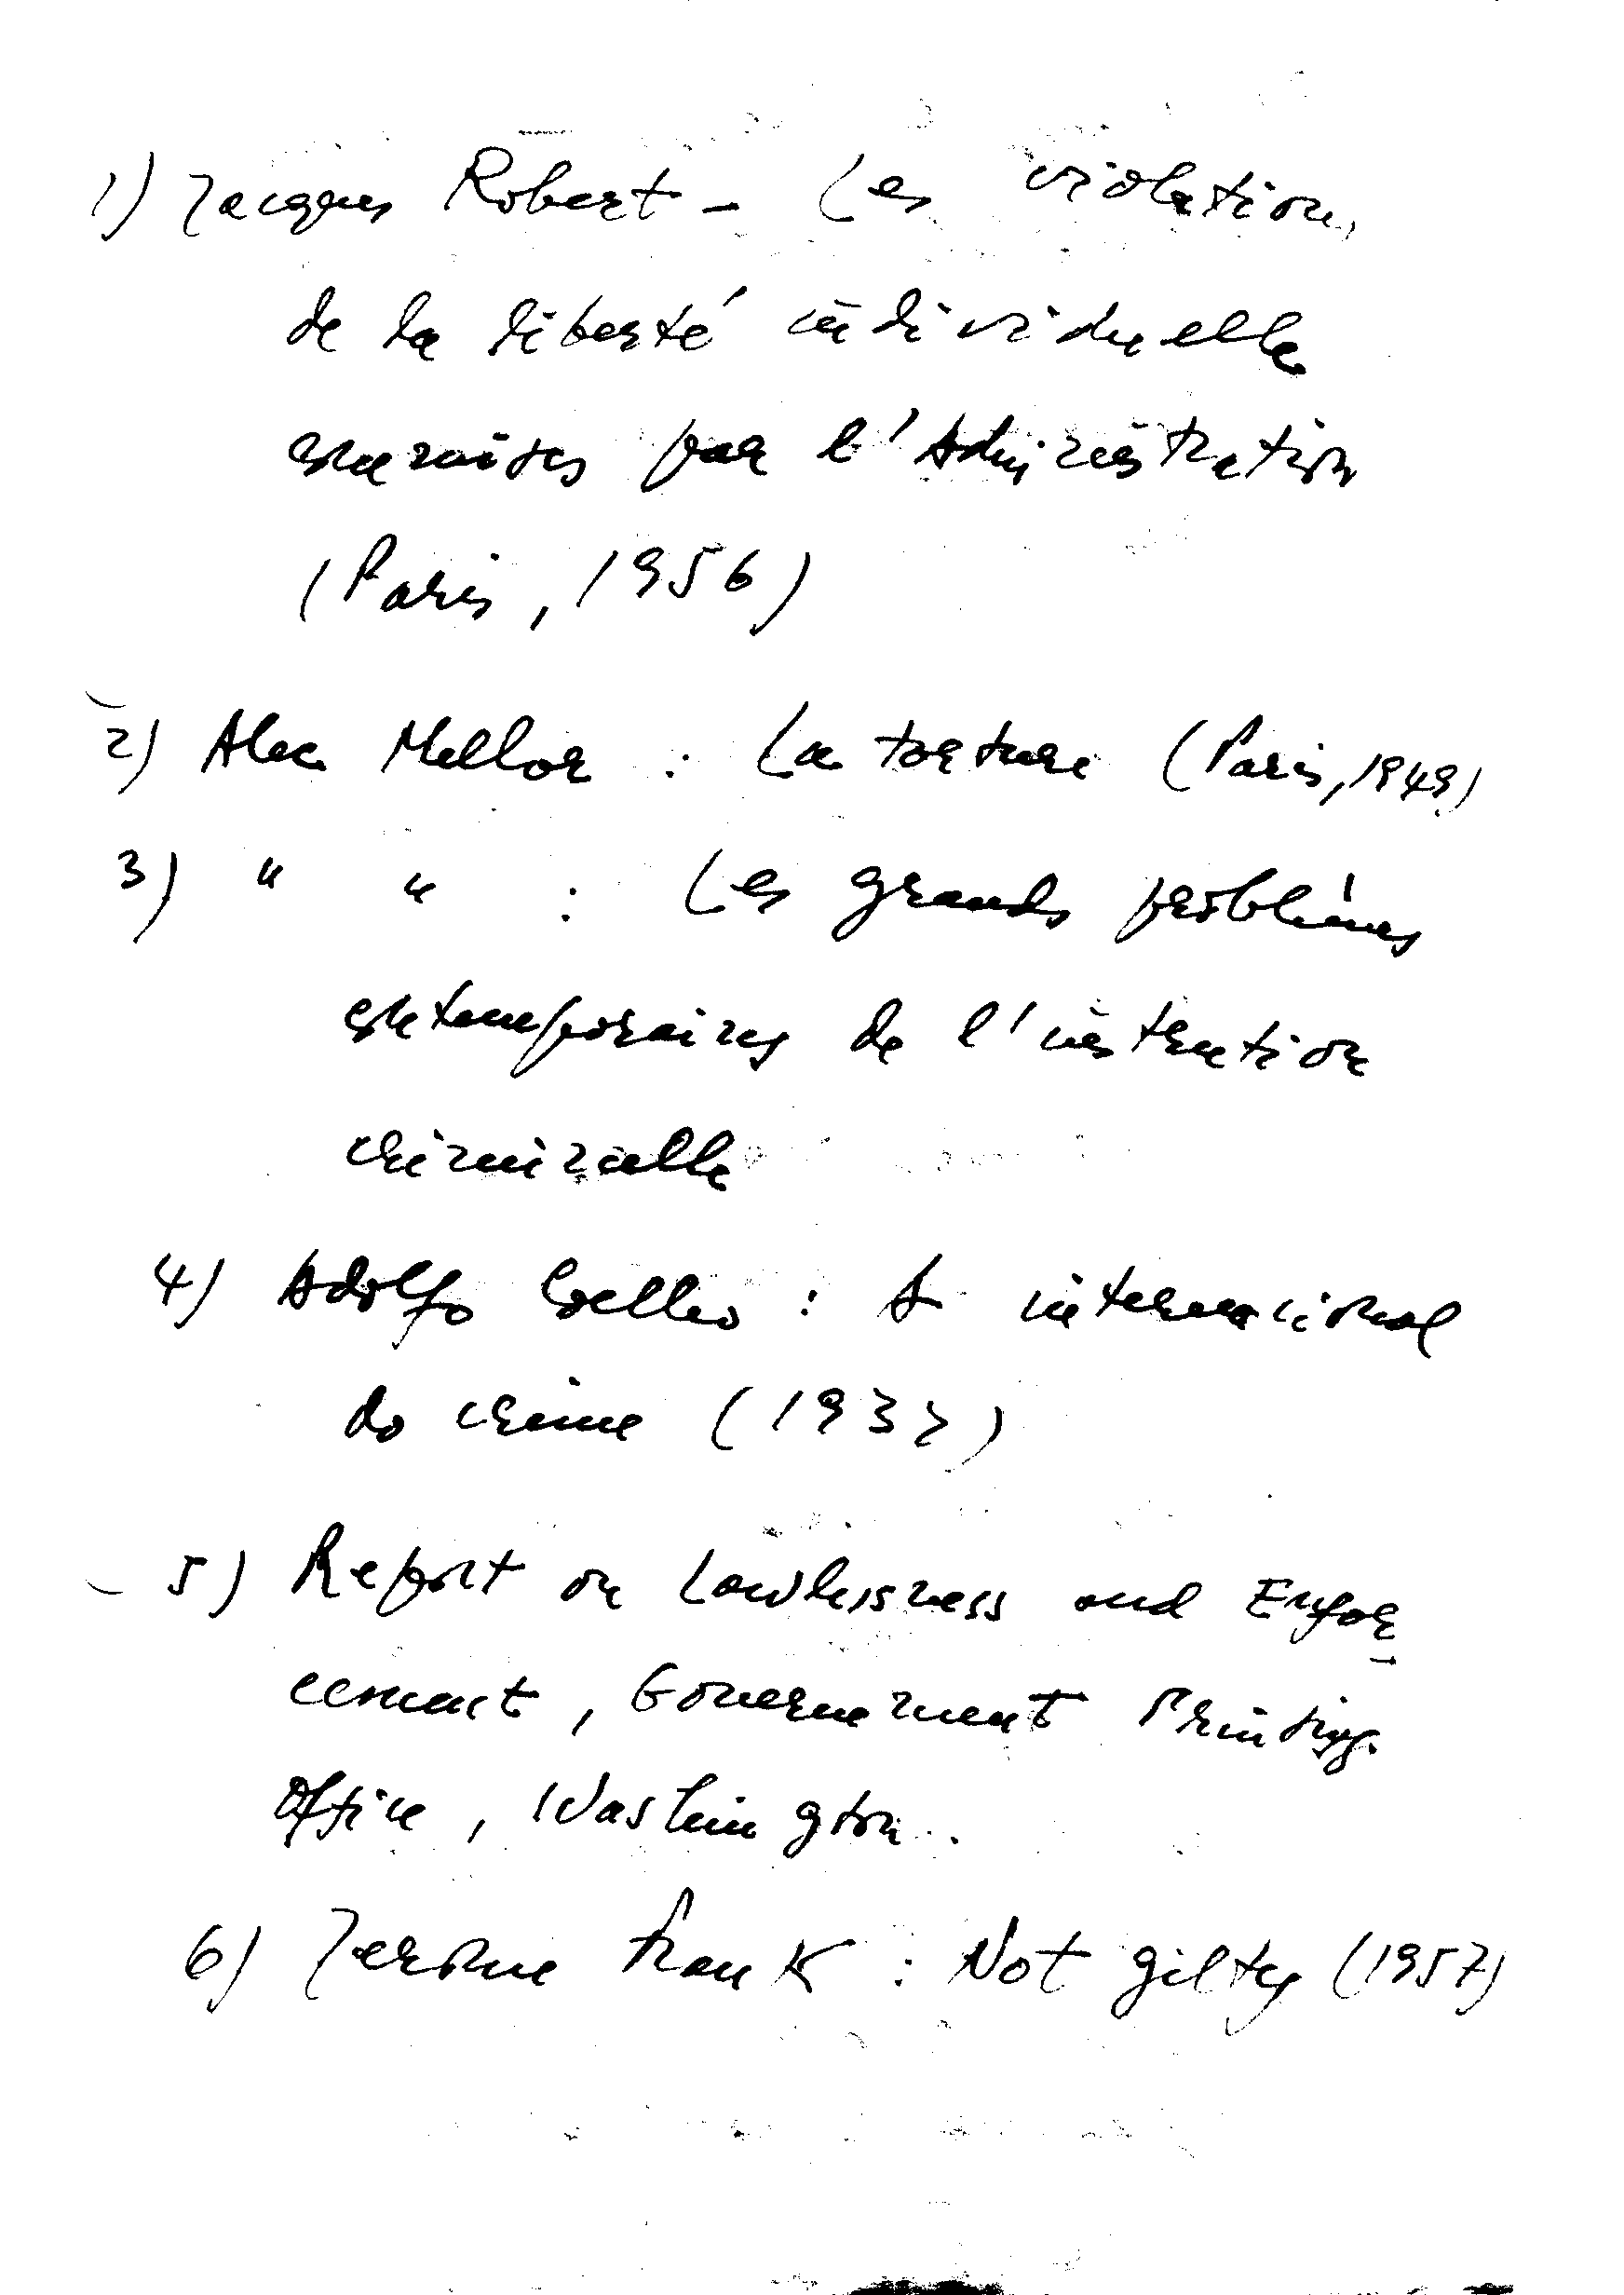 1) Jacques Robert - Les violations
de la liberté individuelle
commises par l'Administration
(Paris, 1956)
2) Alec Mellor : La torture (Paris, 1949)
3) " " : Les grands problèmes
contemporaires de l'instruction
criminelle
4) Adolfo Coelho : A internacional
do crime (1937)
5) Report on Lawlessness and Enfor-
cement, Governement Printing
Office, Washington.
6) Jerome Frank : Not gilty (1957)